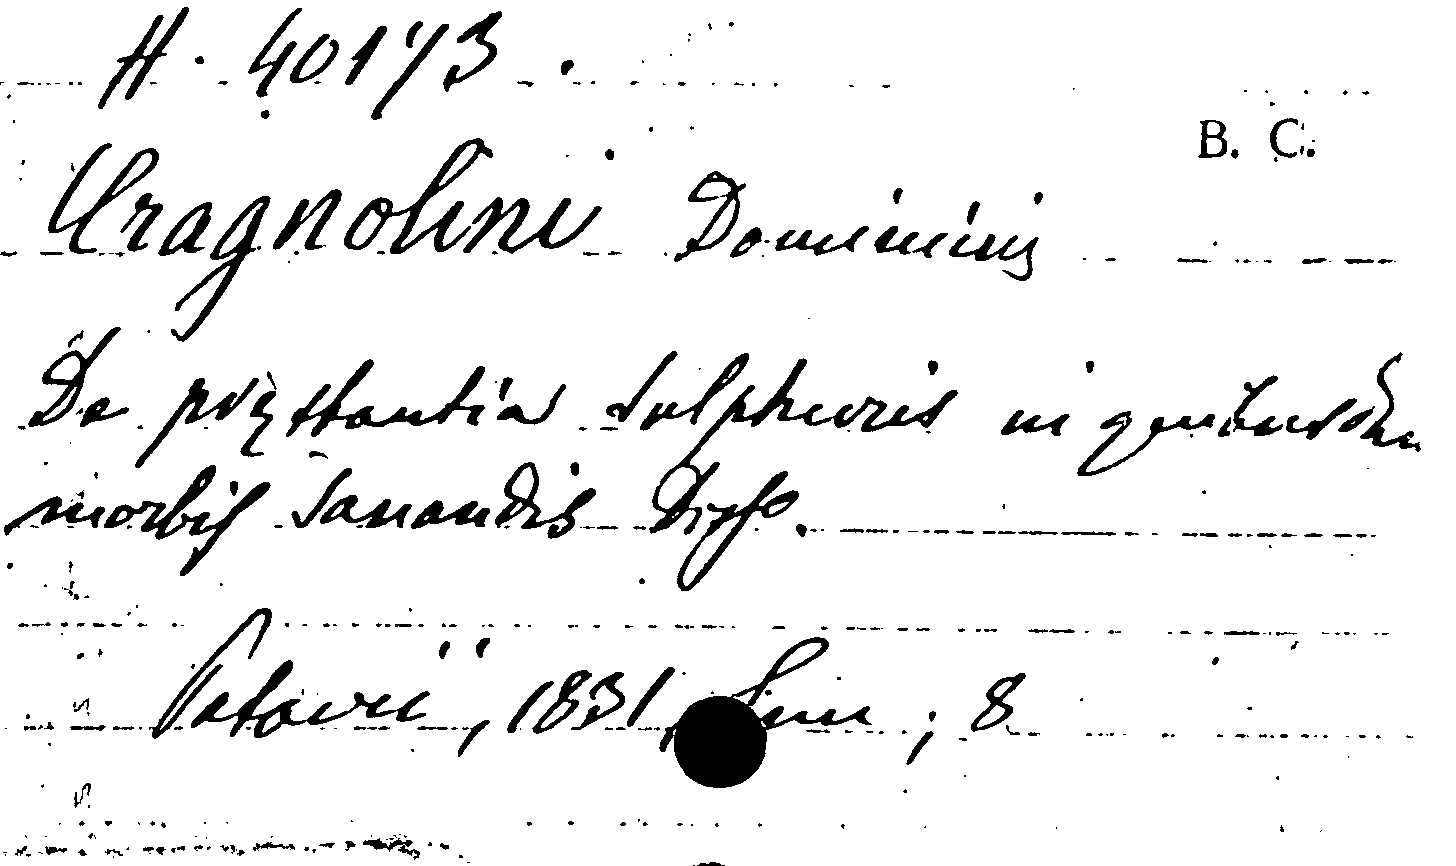 H. 40173.
B. C.
Cragnolini Dominicus
De præstantia sulphuris in quibusdam
morbis sanandis Diss.
Patavii, 1831, ; 8